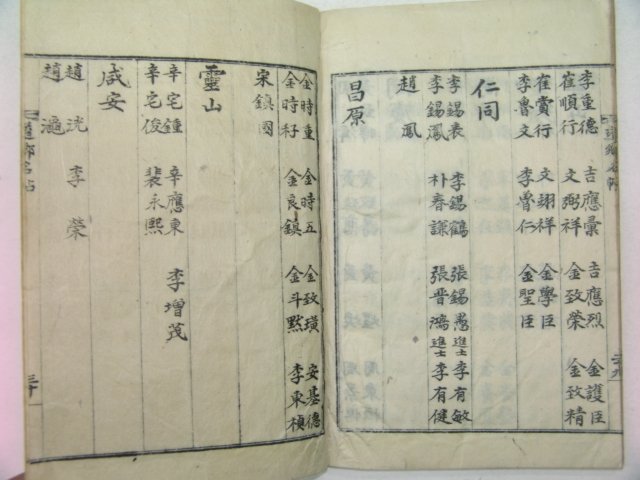 李重德 吉應彙 吉應烈 金護臣
崔順行 文弼祥 金致榮 金致精
崔賞行 文翊祥 金學臣
李魯文 李曾仁 金聖臣
仁同
李錫袠 李錫鶴 張錫愚進士 李有敏
李錫鳳 朴春謙 張晋鴻進士 李有健
趙鳳
昌原
金時重 金時五 金致璜 安基德
金時杍 金良鎮 金斗默 李東楨
宋鎮國
靈山
辛宅鍾 辛應東 李增茂
辛宅俊 裴永熙
咸安
趙 洸 李 榮
趙 適